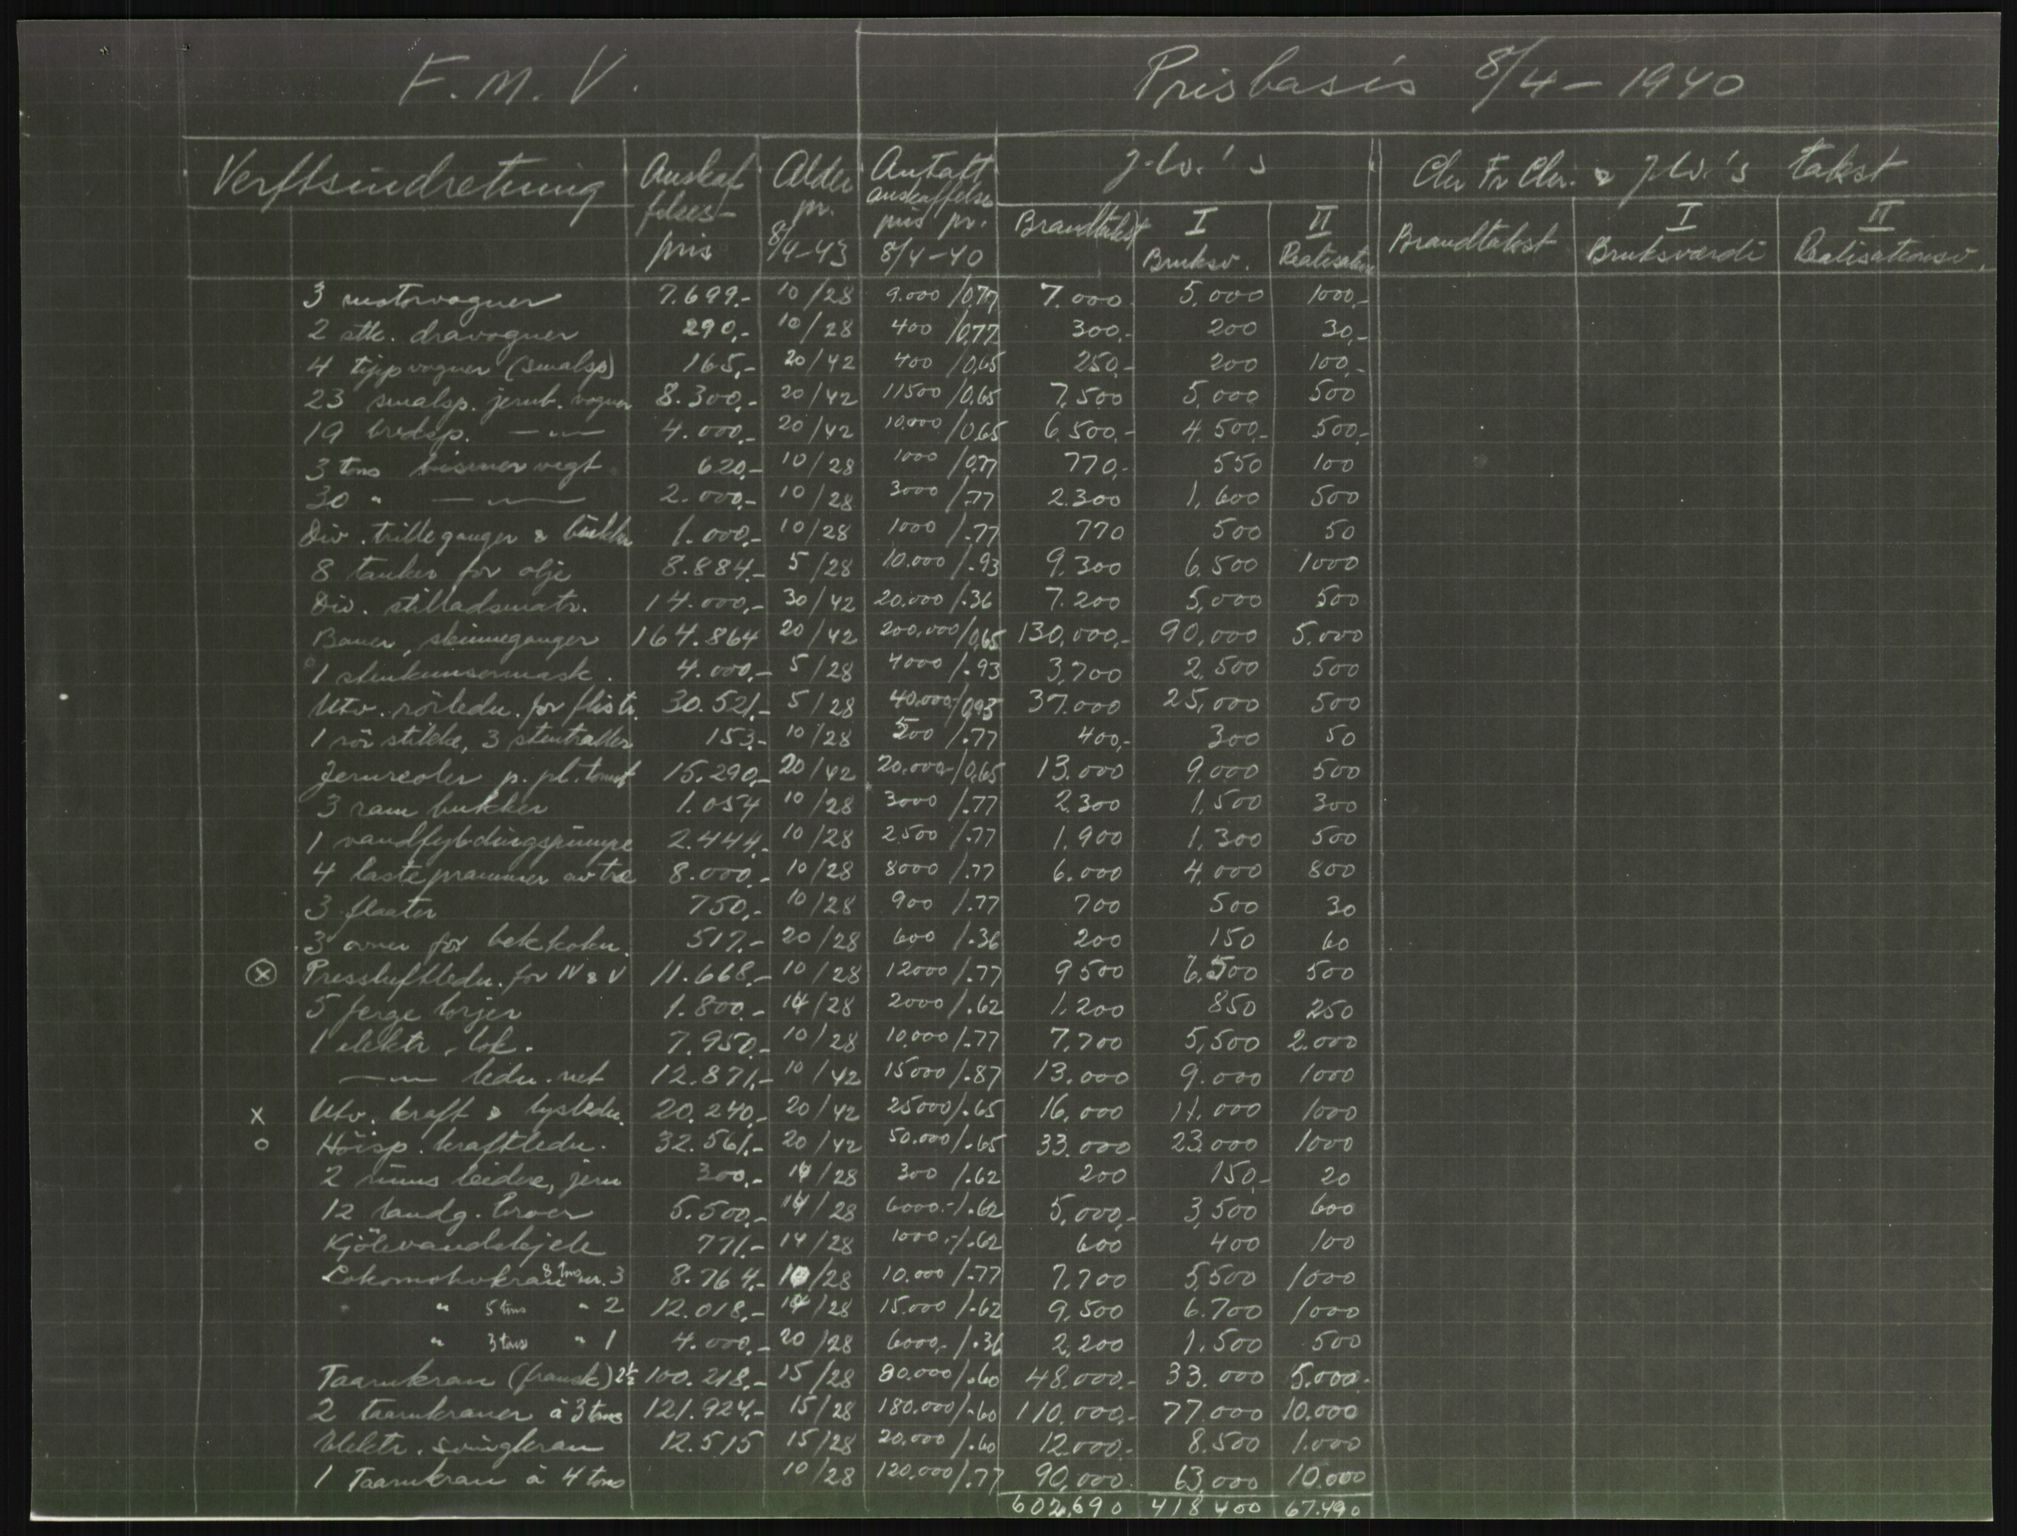 F. M. V. Prisbasis 8/4 - 1940
Verftsindretning Anskaffelsespris Alder pr. 8/4-43 Antatt anskaffelsespris pr. 8/4-40 J.W.'s Chr Fr Chr. & J.W.'s takst
Brandtakst I Bruksv. II Realisation Brandtakst I Bruksværdi II Realisationsv.
3 motorvogner 7.699.- 10/28 9.000 /0,77 7.000 5,000 1000,-
2 stk. dravogner 290,- 10/28 400 /0,77 300,- 200 30,-
4 tippvogner (smalsp) 165,- 20/42 400 /0,65 250,- 200 100,-
23 smalsp. jernb. vogner 8.300,- 20/42 11500 /0,65 7,500 5,000 500
19 bredsp. -"- 4.000,- 20/42 10,000 /0,65 6,500,- 4.500,- 500,-
3 tons bismervegt 620,- 10/28 1000 /0,77 770,- 550 100
30 " -"- 2.000,- 10/28 3000 /.77 2.300 1,600 500
Div. trilleganger & bukker 1.000,- 10/28 1000 /.77 770 500 50
8 tanker for olje 8.884.- 5/28 10.000 /.93 9,300 6,500 1000
Div. stilladsmatr. 14.000,- 30/42 20.000 /.36 7.200 5,000 500
Baner, skinneganger 164.864 20/42 200,000 /0,65 130,000,- 90,000 5.000
1 stenknusermask. 4.000,- 5/28 4000 /.93 3,700 2,500 500
Utv. rörledn. for 30.521,- 5/28 40.000,- /0,93 37.000 25,000 500
1 153,- 10/28 500 /.77 400,- 300 50
Jernreoler p. pl. tomt 15.290,- 20/42 20.000,- /0,65 13.000 9,000 500
3 ram bukker 1.054 10/28 3000 /.77 2,300 1,500 300
1 2.444,- 10/28 2500 /.77 1,900 1,300 500
4 lasteprammer av træ 8.000,- 10/28 8000 /.77 6.000 4,000 800
3 flaater 750,- 10/28 900 /.77 700 500 30
3 ovner for bekkokn. 517.- 20/28 600 /.36 200 150 60
ⓧ Pressluftledn. for IV & V 11.668,- 10/28 12000 /.77 9500 6,500 500
5 1.800.- 14/28 2000 /.62 1,200 850 250
1 elektr. lok. 7.950,- 10/28 10,000 /.77 7,700 5,500 2.000
-"- ledn. net 12.871,- 10/42 15000 /.87 13.000 9.000 1000
x Utv. kraft & lysledn. 20.240,- 20/42 25000 /.65 16,000 11.000 1000
o Höisp. kraftledn. 32.561,- 20/42 50.000 /.65 33.000 23.000 1000
2 leidere, jern 300,- 14/28 300 /.62 200 150,- 20
12 landg. broer 5.500,- 14/28 6000.- /.62 5,000,- 3,500 600
Kjölevandskjele 771.- 14/28 1000,- /.62 600 400 100
Lokomotivkran 8 tons nr. 3 8.764,- 10/28 10.000 /.77 7,700 5,500 1000
" 5 tons " 2 12.018,- 14/28 15.000 /.62 9,500 6.700 1000
" 3 tons " 1 4.000,- 20/28 6000,- /.36 2,200 1,500 500
Taarnkran (fransk) 2½ 100.218,- 15/28 80.000 /.60 48.000.- 33.000 5.000.-
2 taarnkraner à 3 tons 121.924,- 15/28 180.000 /.60 110,000,- 77.000 10.000
Elektr. svingkran 12.515 15/28 20,000 /.60 12,000.- 8.500 1.000
1 Taarnkran à 4 tons 10/28 120,000 /.77 90,000 63,000 10.000
602,690 418400 67.490